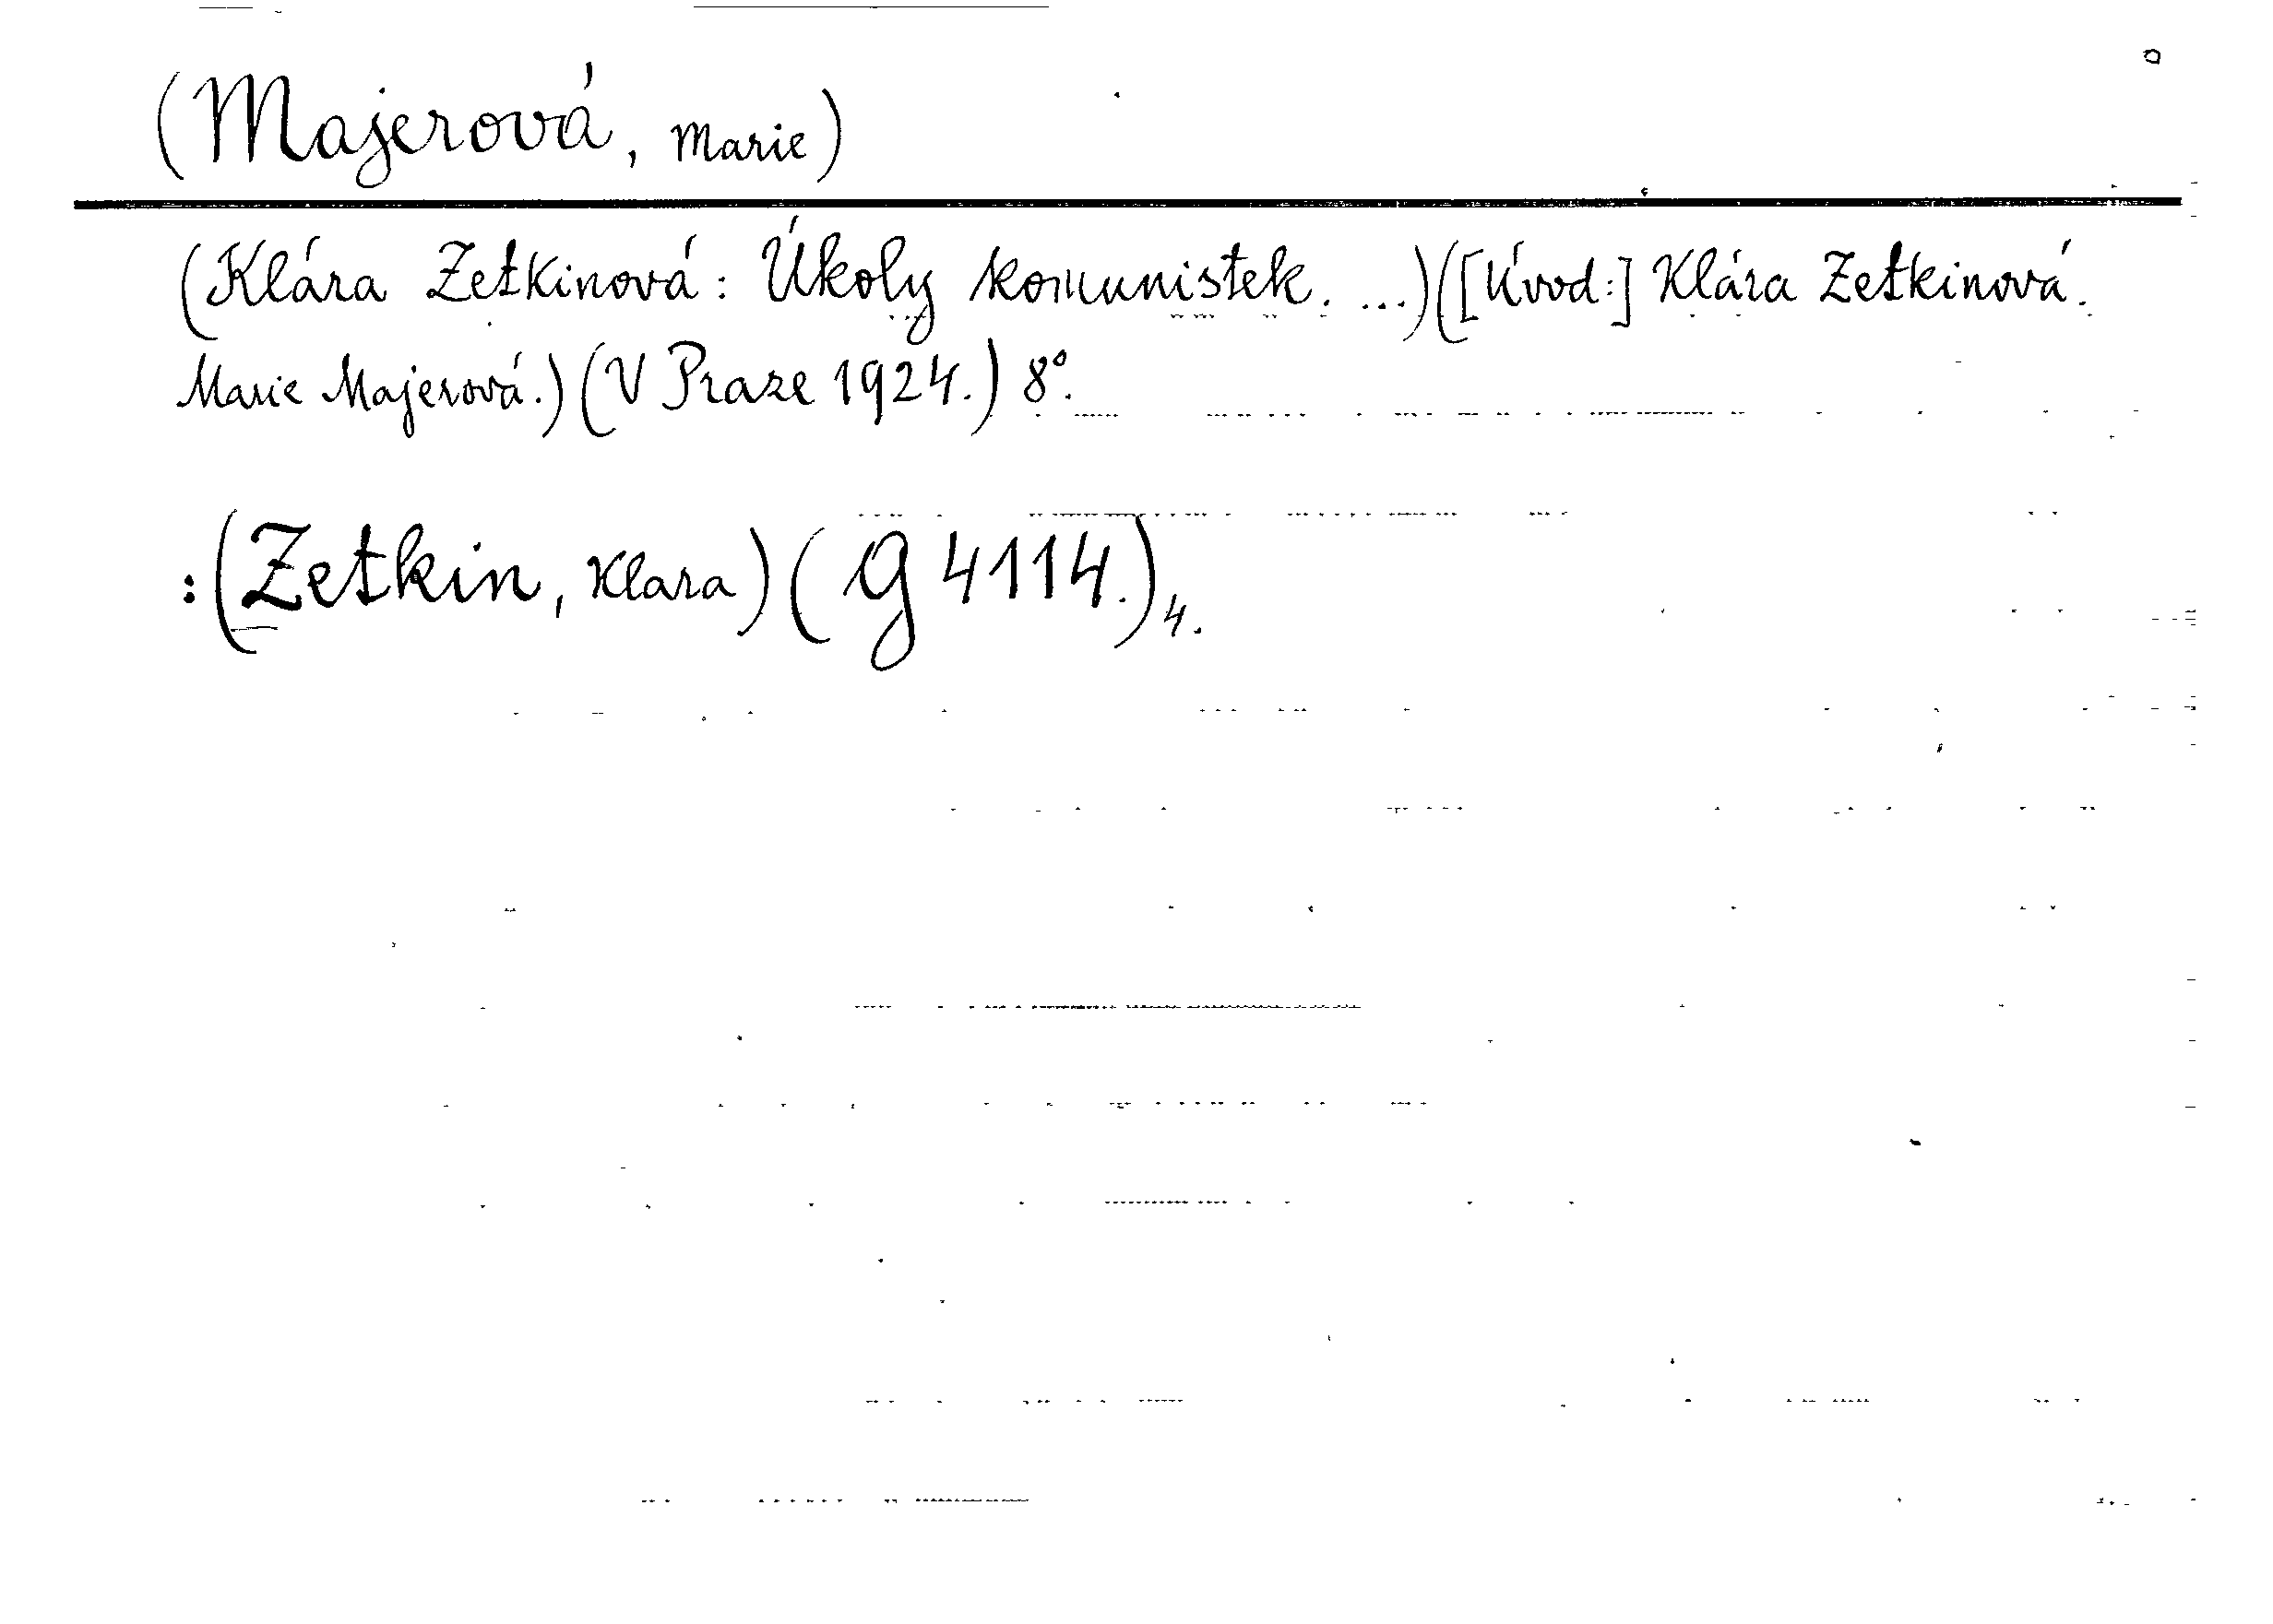 (Majerová, Marie)
(Klára Zetkinová: Úkoly komunistek. ...)([Úvod:] Klára Zetkinová.
Marie Majerová.)(V Praze 1924.) 8°.
:(Zetkin, Klara)(G 4114.)4.